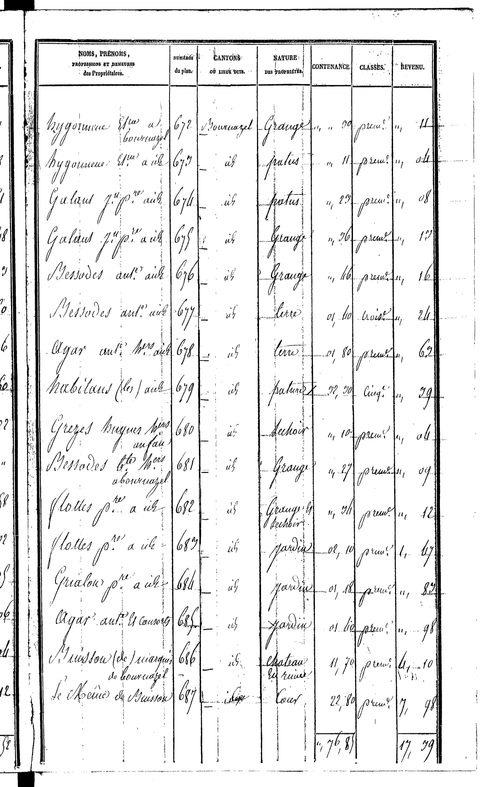 NOMS, PRÉNOMS, PROFESSIONS ET DEMEURES des Propriétaires. NUMÉROS du plan. CANTONS OU LIEUX DITS. NATURE DES PROPRIÉTÉS. CONTENANCE. CLASSES. REVENU.
hygonnene Et.ne a bournazel 672 Bournazel Grange „ „ 30 prem.e „, 11
hygonnene Et.ne a id 673 id patus „, 11 prem.e „, 04
Galaus J.n p.re a id 674 id patus „, 23 prem.e „, 08
Galaus J.n p.re a id 675 id Grange „, 36 prem.e „, 13
Bessodes ant.e a id 676 id Grange „, 46 prem.e „, 16
Bessodes ant.e a id 677 id terre 01, 60 trois.e „, 24
Agar ant.e h.ers a id 678 id terre 01, 80 prem.e „, 63
habitans (les) a id 679 id pature 32, 30 Cinq.e „, 39
Grezes h.ers 680 id Sechoir „, 10 prem.e „, 04
Bessodes h.ers a bournazel 681 id Grange „, 27 prem.e „, 09
flottes p.re a id 682 id Grange et Sechoir „, 34 prem.e „, 12
flottes p.re a id 683 id Jardin 02, 10 prem.e 1, 47
Grialou p.re a id 684 id Jardin 01, 18 prem.e „, 83
Agar ant.e et consorts 685 id Jardin 01, 40 prem.e „, 98
Buisson (de) marquis de bournazel 686 id Chateau En ruine 11, 70 prem.e 4, 10
Le Même de Buisson 687 Cour 22, 80 prem.e 7, 98
„, 76, 85 17, 39